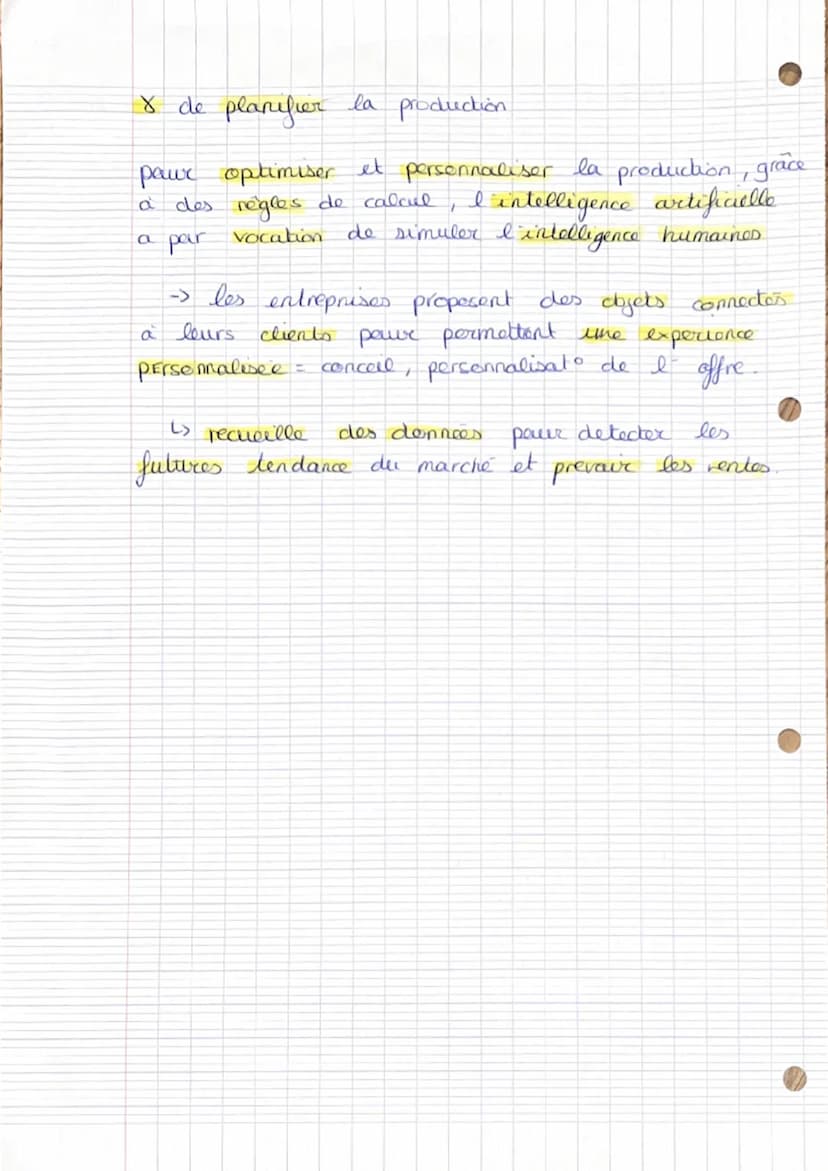 γ de planifier la production
pour optimiser et personnaliser la production, grâce
à des règles de calcul, l'intelligence artificielle
a par vocation de simuler l'intelligence humaines
-> les entreprises proposent des objets connectés
à leurs clients pour permettent une experience
PERsonnalisée = conceil, personnalisat° de l' offre.
↳ recueille des données pour detecter les
futures tendance du marché et prevoir les ventes.